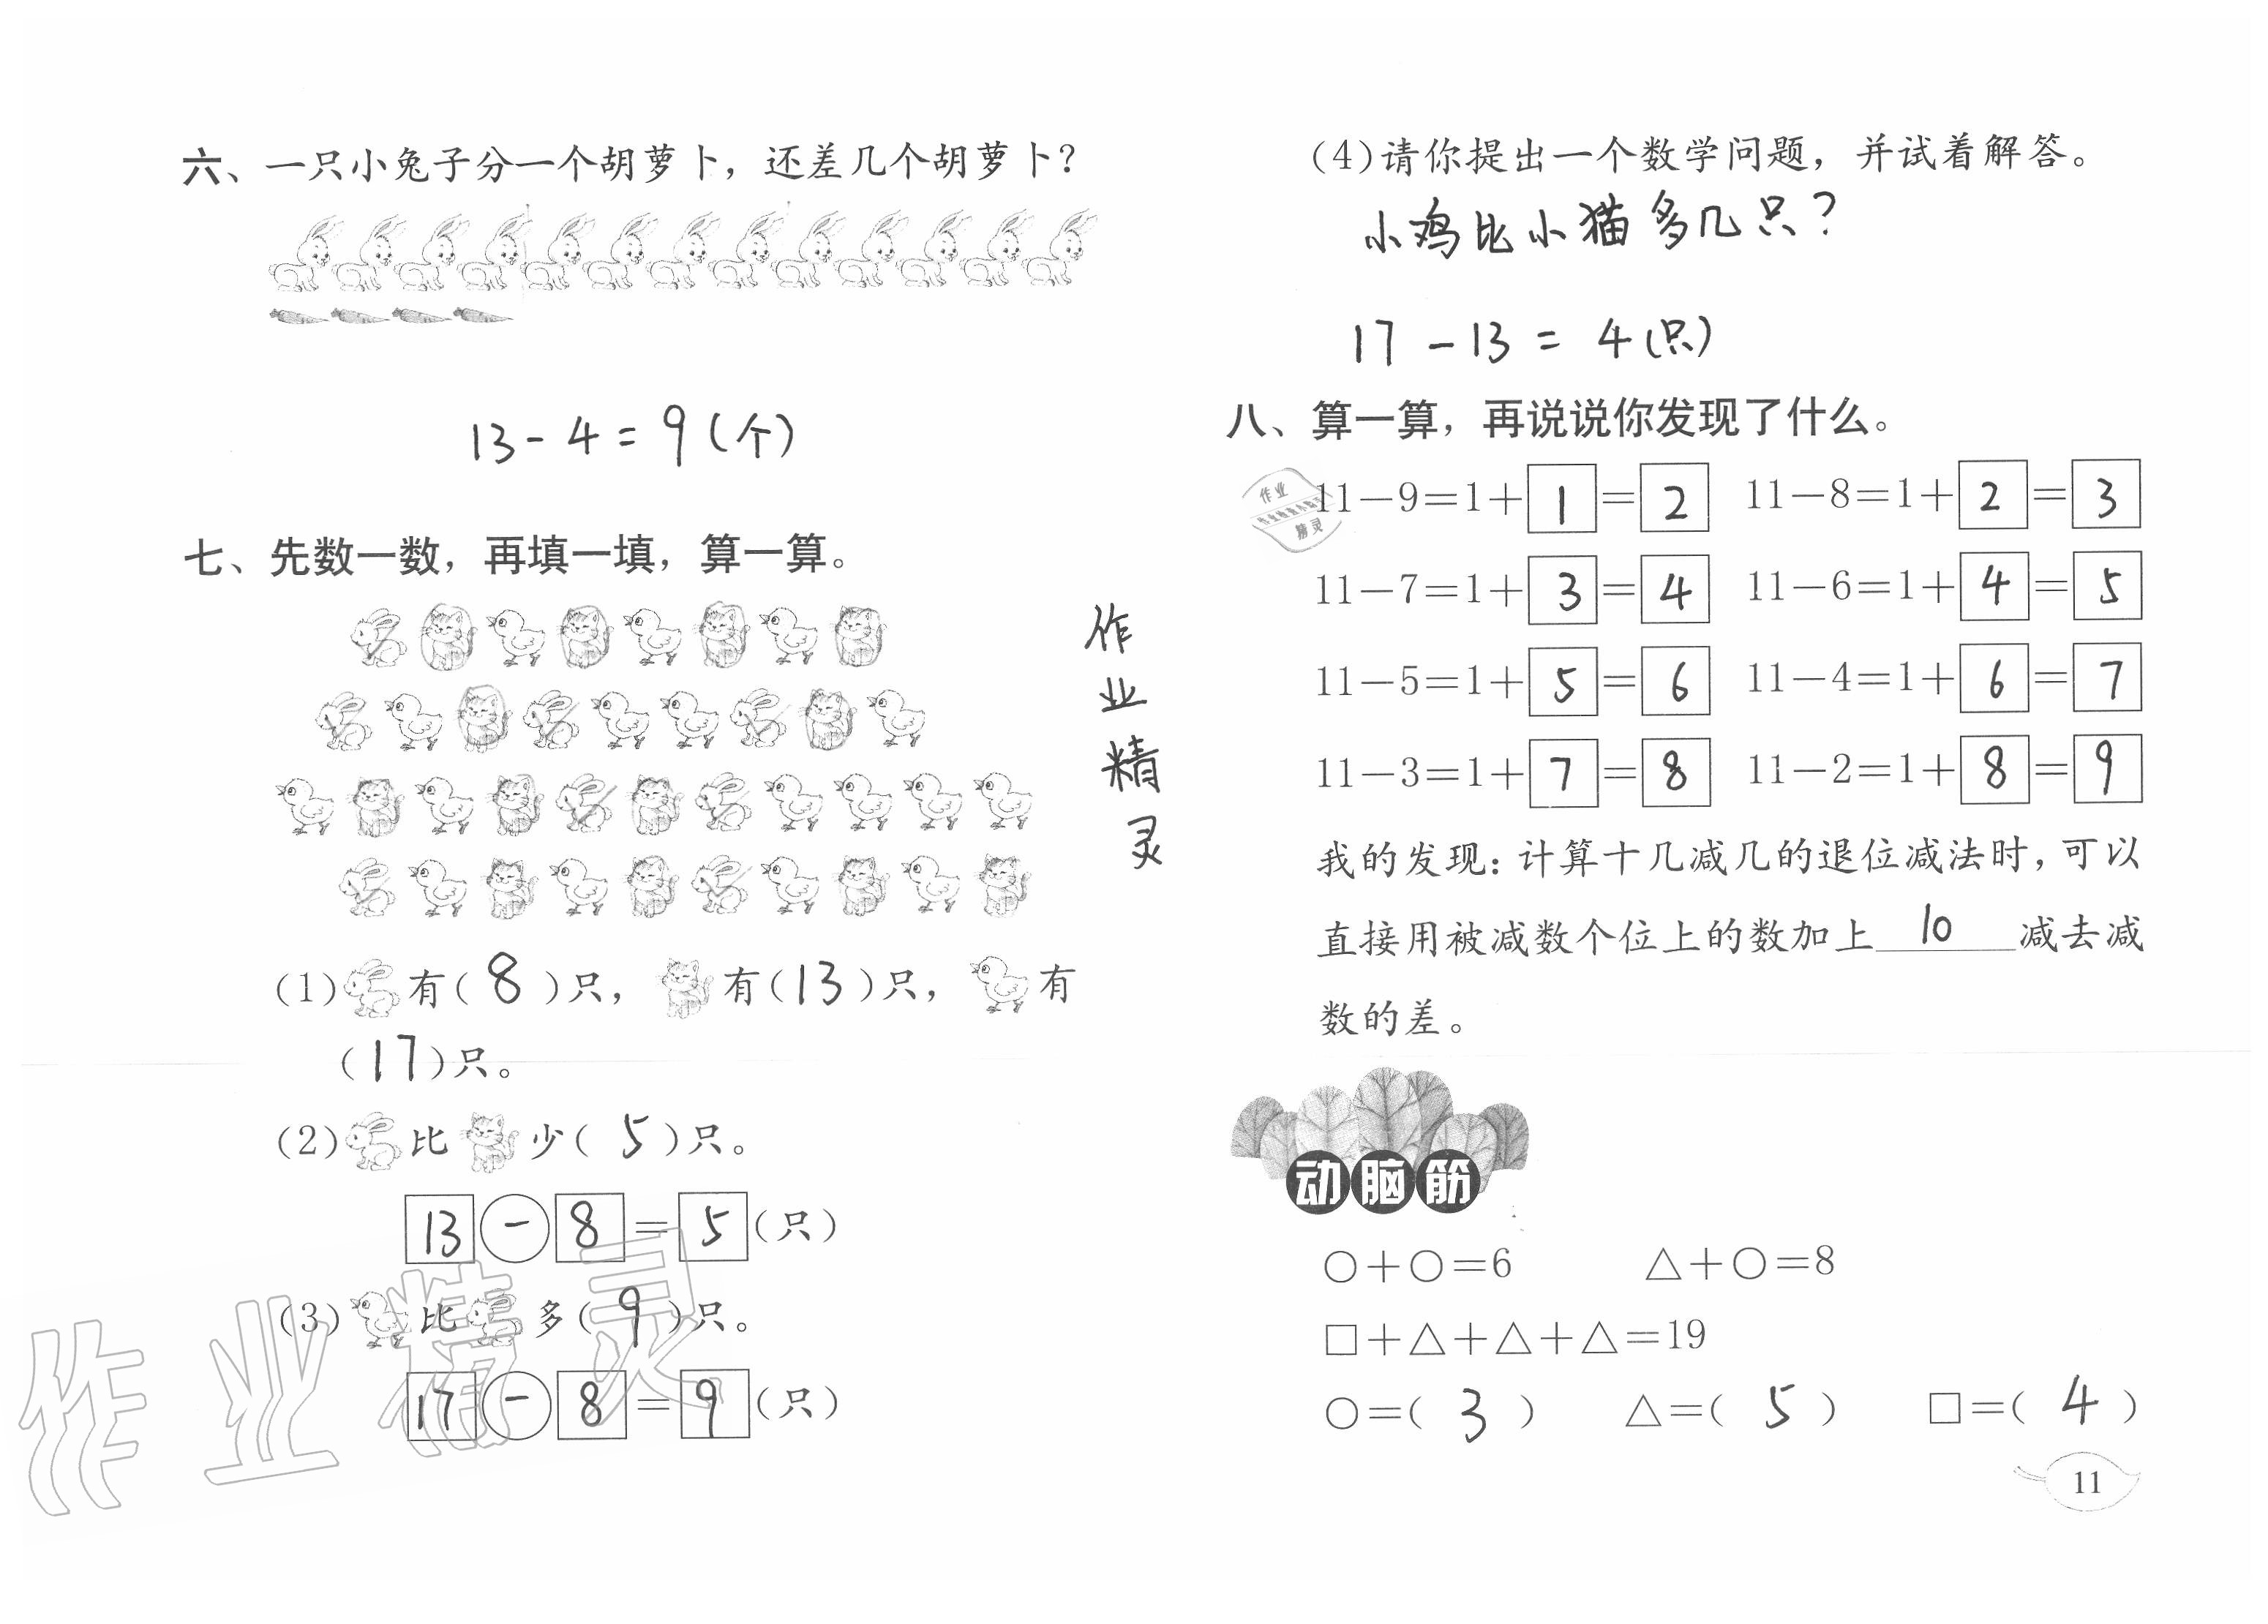 六、一只小兔子分一个胡萝卜，还差几个胡萝卜？
13-4=9(个)
七、先数一数，再填一填，算一算。
(1)有(8)只，有(13)只，有
(17)只。
(2)比少(5)只。
13-8=5(只)
(3)比多(9)只。
17-8=9(只)
作业精灵
作业精灵
(4)请你提出一个数学问题，并试着解答。
小鸡比小猫多几只？
17-13=4(只)
八、算一算，再说说你发现了什么。
作业
精灵
11-9=1+1=2 11-8=1+2=3
11-7=1+3=4 11-6=1+4=5
11-5=1+5=6 11-4=1+6=7
11-3=1+7=8 11-2=1+8=9
我的发现：计算十几减几的退位减法时，可以
直接用被减数个位上的数加上10减去减
数的差。
动脑筋
○+○=6 △+○=8
□+△+△+△=19
○=(3) △=(5) □=(4)
11